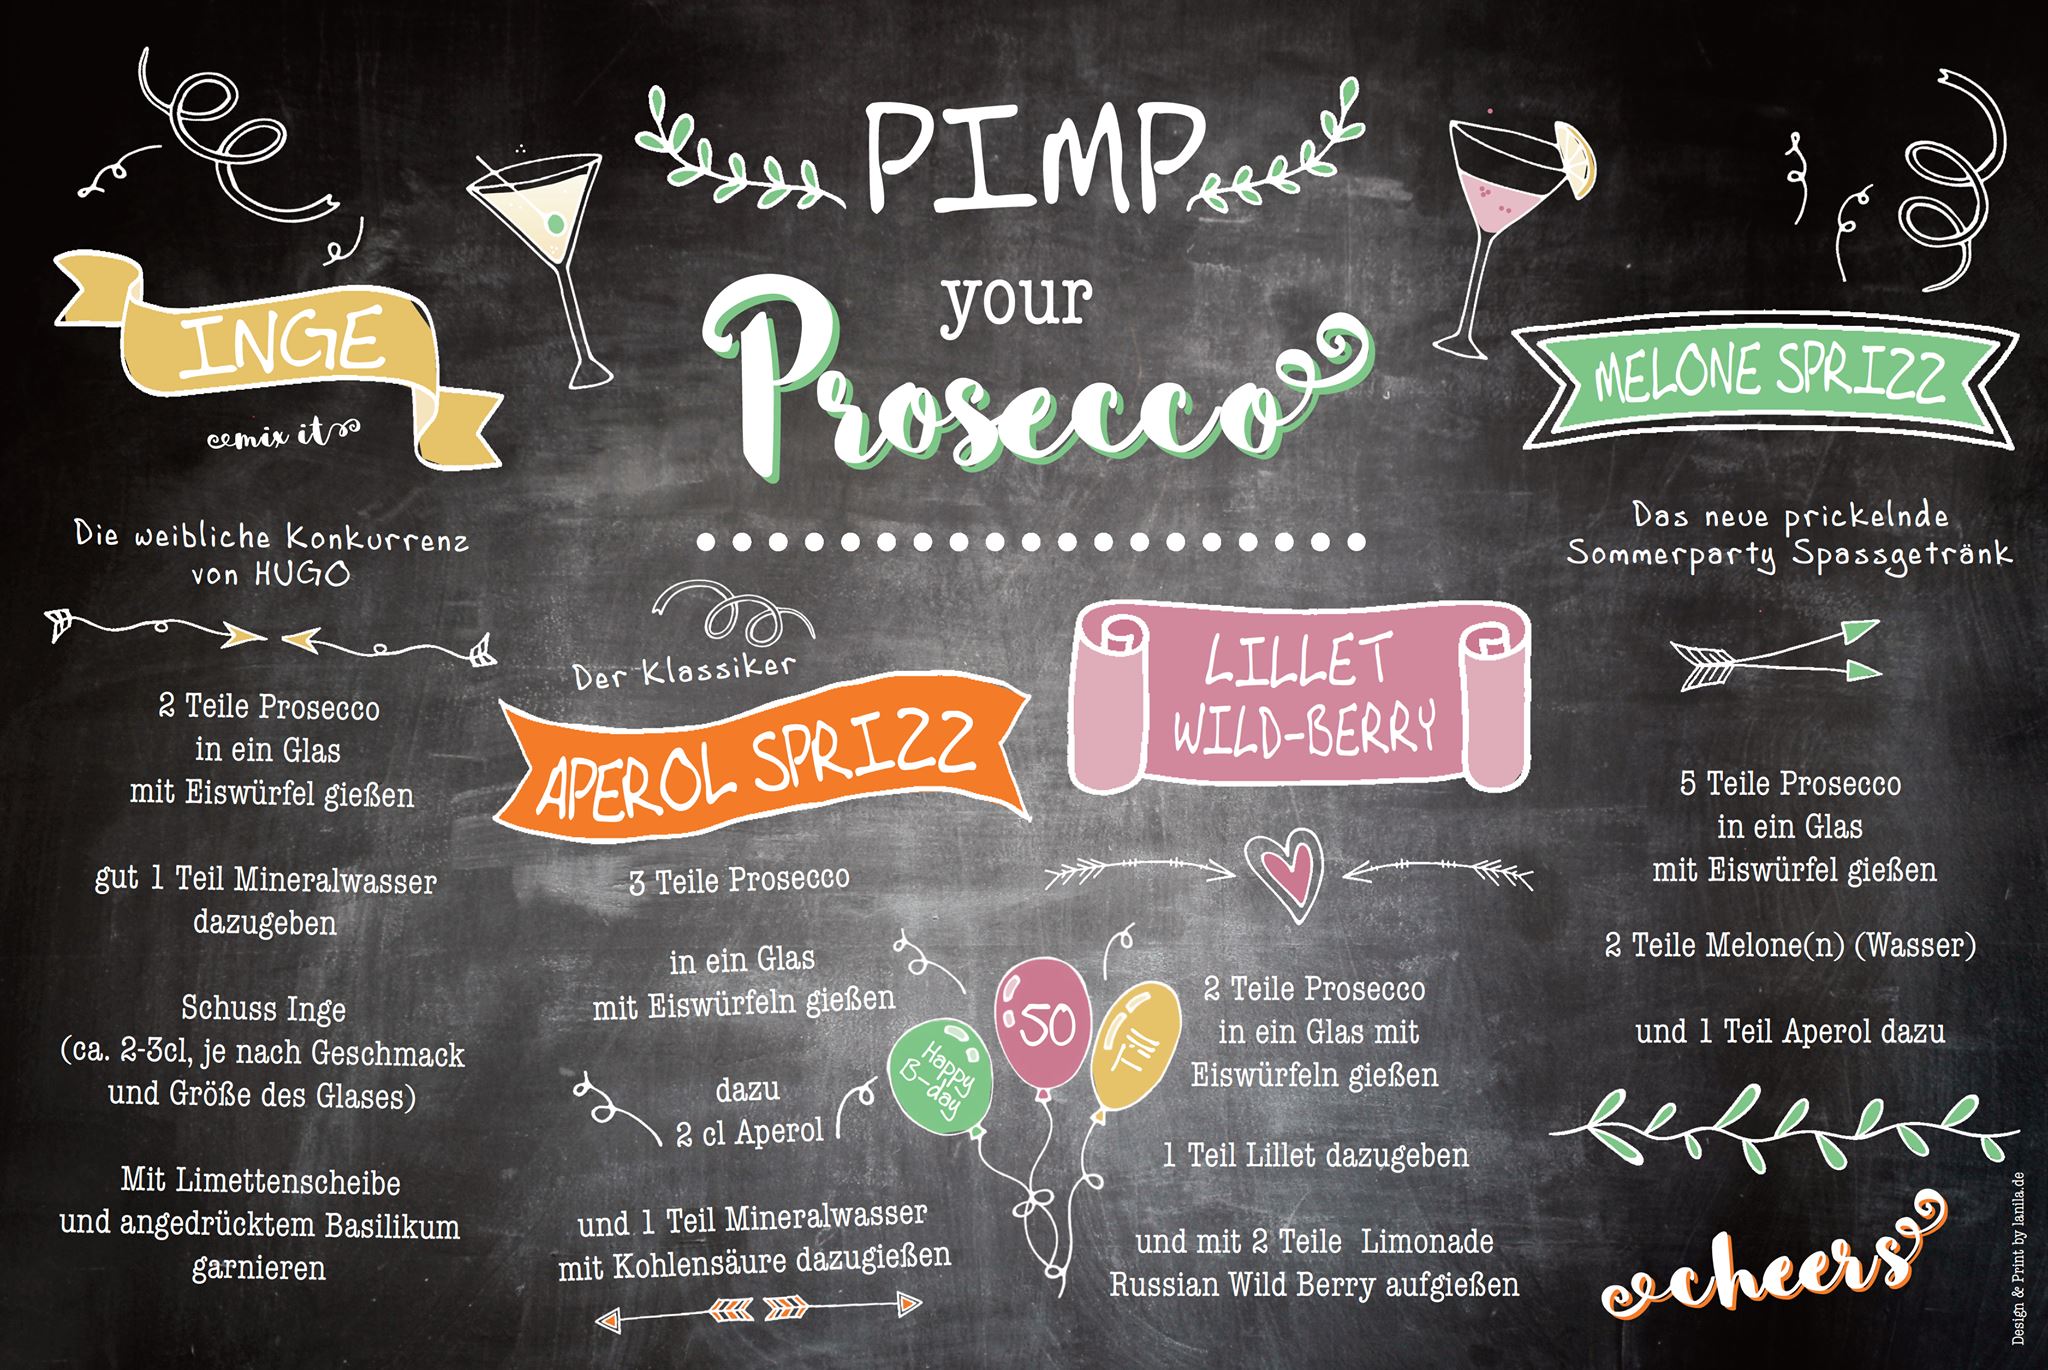 PIMP
your
Prosecco
INGE
mix it
Die weibliche Konkurrenz
von HUGO
2 Teile Prosecco
in ein Glas
mit Eiswürfel gießen
gut 1 Teil Mineralwasser
dazugeben
Schuss Inge
(ca. 2-3cl, je nach Geschmack
und Größe des Glases)
Mit Limettenscheibe
und angedrücktem Basilikum
garnieren
Der Klassiker
APEROL SPRIZZ
3 Teile Prosecco
in ein Glas
mit Eiswürfeln gießen
dazu
2 cl Aperol
und 1 Teil Mineralwasser
mit Kohlensäure dazugießen
Happy
B-day
50
Till
LILLET
WILD-BERRY
2 Teile Prosecco
in ein Glas mit
Eiswürfeln gießen
1 Teil Lillet dazugeben
und mit 2 Teile Limonade
Russian Wild Berry aufgießen
MELONE SPRIZZ
Das neue prickelnde
Sommerparty Spassgetränk
5 Teile Prosecco
in ein Glas
mit Eiswürfel gießen
2 Teile Melone(n) (Wasser)
und 1 Teil Aperol dazu
cheers
Design & Print by lanila.de